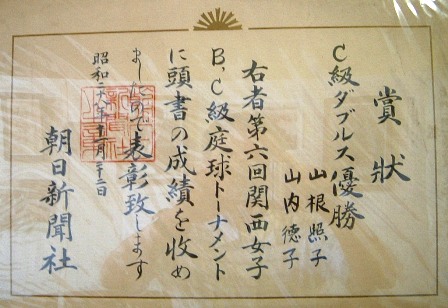 賞狀
C級ダブルス優勝
山根照子
山内徳子
右者第六回関西女子
B、C級庭球トーナメント
に頭書の成績を収め
ましたので表彰致します
昭和二十八年十一月二十二日
朝日新聞社